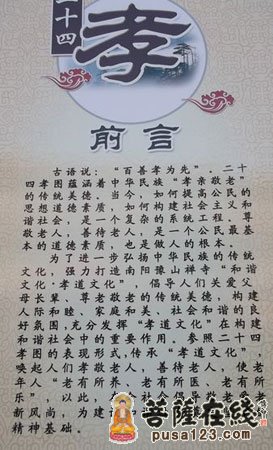 二十四
孝
前言
古语说："百善孝为先"。二十
四孝图蕴涵着中华民族"孝亲敬老"
的传统美德。当今，如何提高公民的
思想道德素质，如何构建社会主义和
谐社会，是一个复杂的系统工程。尊
敬老人，善待老人，是一个公民最基
本的道德素质，也是做人的根本。
为了进一步弘扬中华民族的传统
文化，强力打造南阳豫山禅寺"和谐
文化·孝道文化"，倡导人们关爱父
母长辈、尊老敬老的传统美德，构建
人际和睦、家庭和美、社会和谐的良
好氛围，充分发挥"孝道文化"在构建
和谐社会中的重要作用。参照二十四
孝图的表现形式，传承"孝道文化"，
唤起人们孝敬老人，善待老人，使老
年人"老有所养、老有所医、老有所
乐"，以此，
新风尚，为建设
精神基础。
菩萨在线
pusa123.com